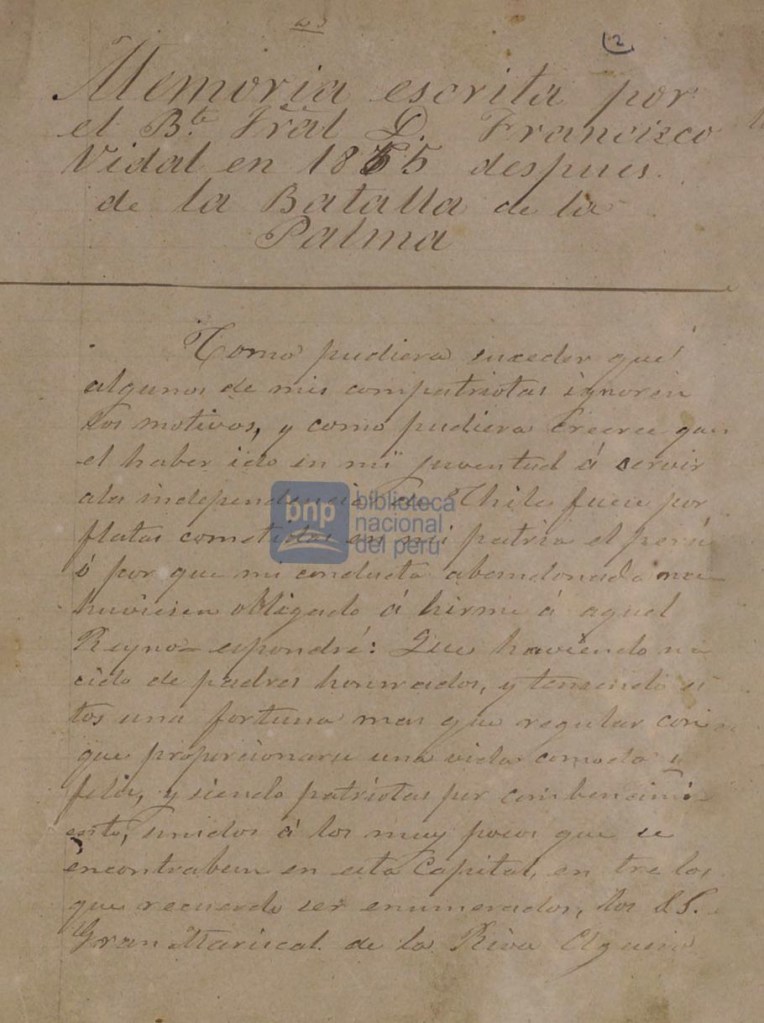 25
2
Memoria escrita por
el B.te Gral D. Francisco
Vidal en 1855 despues
de la Batalla de la
Palma
Como pudiera suceder que
algunos de mis compatriotas ignoren
los motivos, y como pudiera creerse que
el haber ido en mi juventud á servir
ala independencia de Chile fuese por
faltas cometidas en mi patria el perú
ó por que mi conducta abandonada me
huviesen obligado á hirme á aquel
Reyno espondré: Que haviendo na
cido de padres honrrados, y teniendo es
tos una fortuna mas que regular con
que proporcionarse una vida comoda y
feliz, y siendo patriotas por combencimi
ento, unidos á los muy pocos que se
encontraban en esta Capital, en tre los
que recuerdo ser enumerados, los S.S.
Gran Mariscal de la Riva Aguero
bnp biblioteca
nacional
del perú